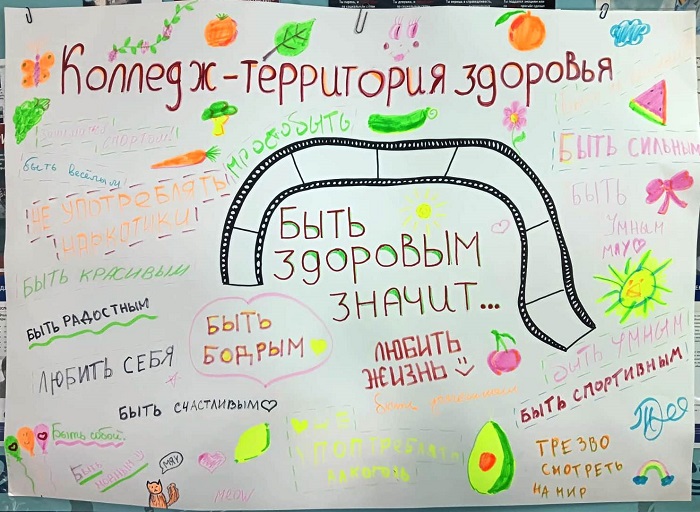 Колледж-территория здоровья
спортом!
Просто быть
быть весёлым!
Не употреблять
наркотики
Быть красивым
Быть радостным
Любить себя
Быть счастливым
Быть собой.
Быть
МЯУ
MEOW
Быть
бодрым
Быть
здоровым
значит...
Любить
жизнь
употреблять
алкоголь
Быть сильным
Быть
умным
мяу
Быть умным
Быть спортивным
Трезво
смотреть
на мир